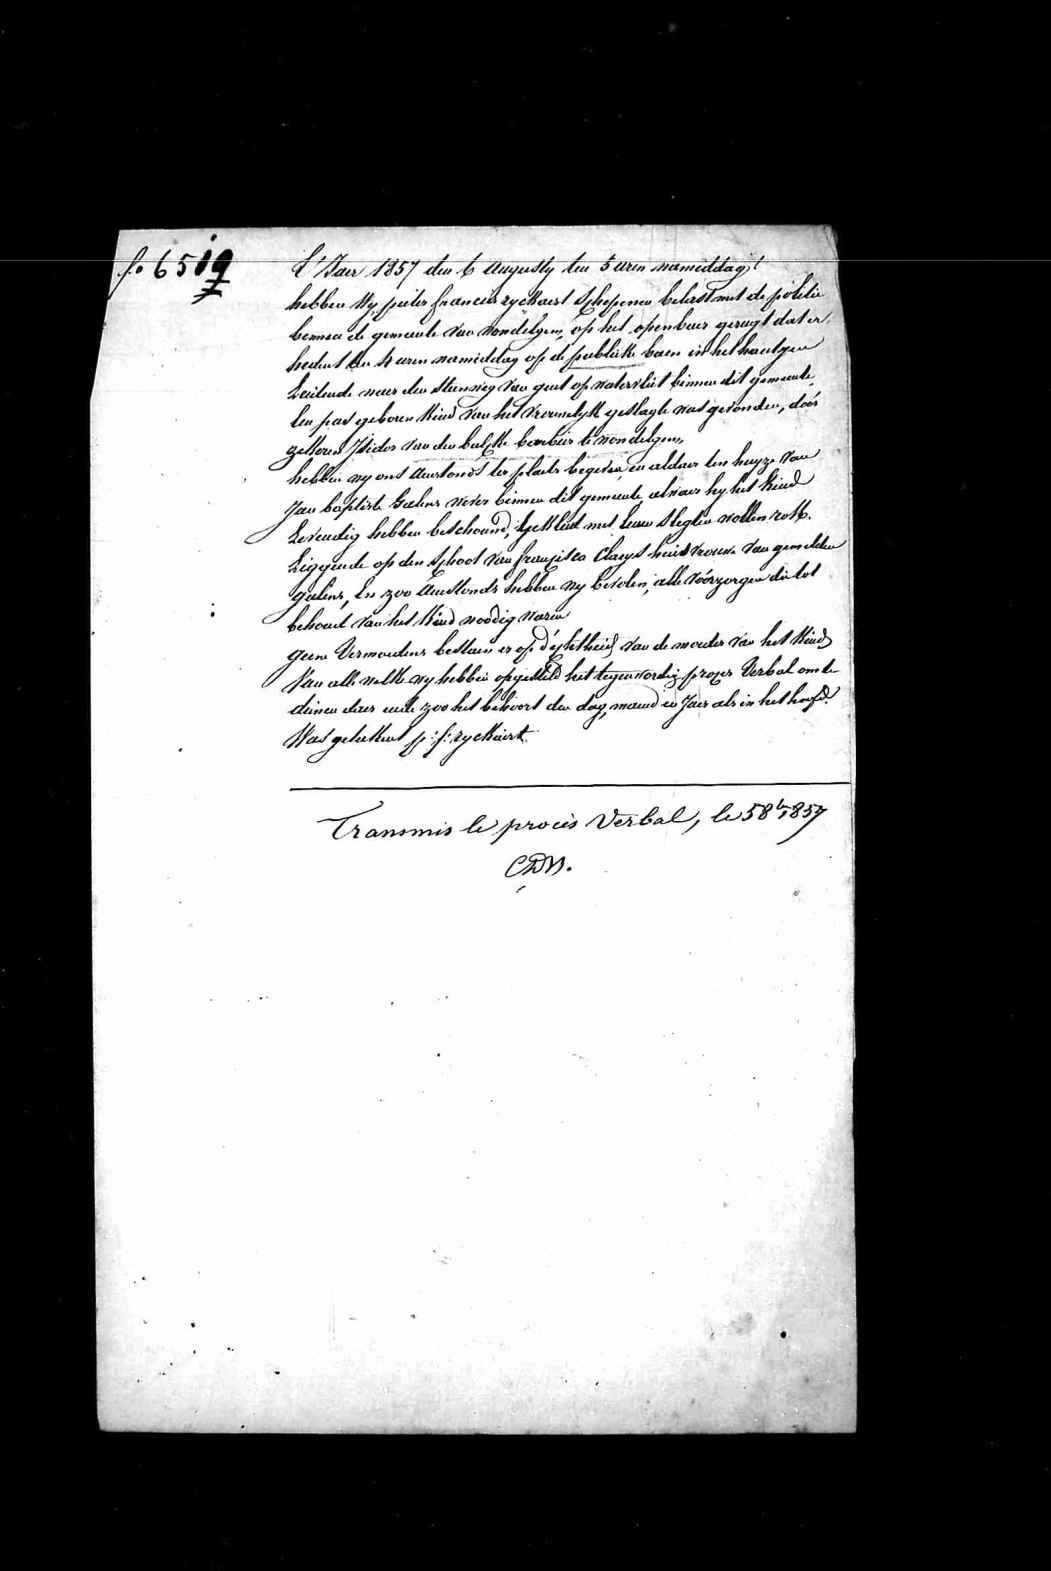 f.o 6519
T Jaer 1857 den 6 Augusty ten 5 uren namiddag,
hebben Wy, pieter francies ryckaert Schepenen belast met de politie
binnen de gemeente van Wondelgem, op het openbaer gerugt dat er
heden ten 4 uren namiddag op de publieke baen in het
Leidende naer den Steenweg van gent op watervliet binnen dit gemeente,
een pas geboren kind van het vrouwelyk geslagte was gevonden, door
zekeren Isidor Van den bulcke barbier te wondelgem,
hebben wy ons aenstonds ter plaets begeven, en aldaer ten huyze van
Jan baptiste Gœlens wever binnen dit gemeente, alwaer hy het Kind
Levendig hebben beschouwd, gekleed met eenen slegten wollen rok.
Liggende op den schoot van francisca Claeys huisvrouwe van gemelden
gœlens, En zoo Aenstonds hebben wy bevolen, alle voórzorgen die tot
behoud van het Kind noodig waren
geene Vermoedens bestaen er op d'egtheid van de moeder van het Kind
Van alle welke wy hebben opgesteld het tegenwoordig proces Verbal om te
dienen daer ende zoo het behoort den dag, maend en Jaer als in het hoofd.
Was geteekent p: f: ryckaert
Transmis le procès Verbal, le 5 8bre 1857
CDM.